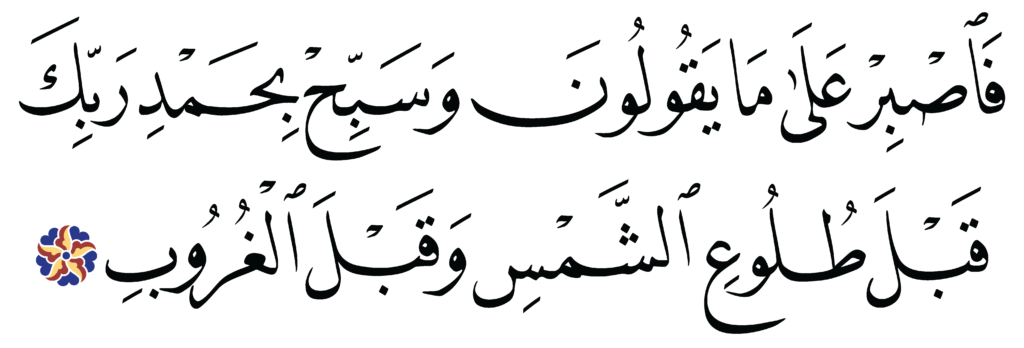 فَٱصْبِرْ عَلَىٰ مَا يَقُولُونَ وَسَبِّحْ بِحَمْدِ رَبِّكَ
قَبْلَ طُلُوعِ ٱلشَّمْسِ وَقَبْلَ ٱلْغُرُوبِ